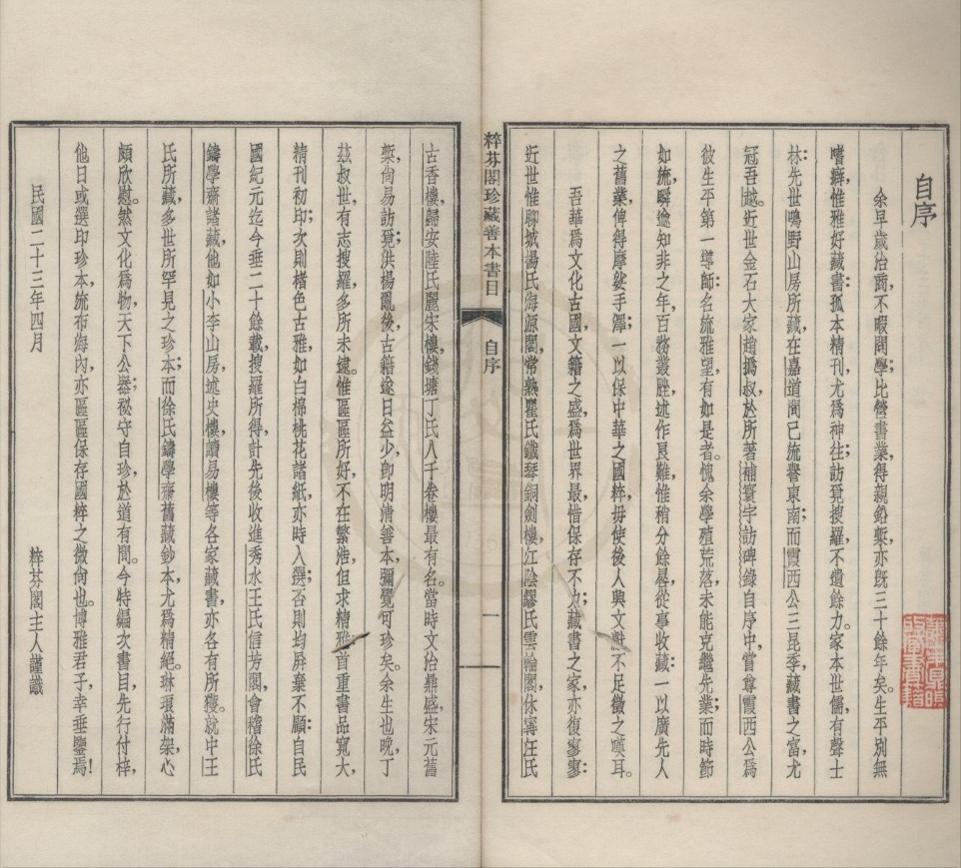 自序
余早歲治商，不暇問學；比營書業，得親鉛槧，亦既三十餘年矣。生平別無
嗜癖，惟雅好藏書：孤本精刊，尤爲神往；訪覓搜羅，不遺餘力。家本世儒，有聲士
林：先世鳴野山房所藏，在嘉道間已流譽東南；而霞西公三昆季，藏書之富，尤
冠吾越。近世金石大家趙撝叔，於所著補寰宇訪碑錄自序中，嘗尊霞西公爲
彼生平第一導師：名流雅望，有如是者。愧余學殖荒落，未能克繼先業；而時節
如流，瞬逾知非之年，百務叢脞，述作艮難，惟稍分餘晷，從事收藏：一以廣先人
之舊業，俾得摩娑手澤；一以保中華之國粹，毋使後人興文獻不足徵之嘆耳。
吾華爲文化古國，文籍之盛，爲世界最，惜保存不力；藏書之家，亦復寥寥：
近世惟聊城楊氏海源閣，常熟瞿氏鐵琴銅劍樓，江陰繆氏雲輪閣，休寗汪氏
粹芬閣珍藏善本書目
自序
一
古香樓，歸安陸氏麗宋樓，錢塘丁氏八千卷樓最有名。當時文治鼎盛，宋元舊
槧，尙易訪覓；洪楊亂後，古籍遂日益少，卽明清善本，彌覺可珍矣。余生也晚，丁
茲叔世，有志搜羅，多所未逮。惟區區所好，不在繁浩，但求精雅：首重書品寬大，
精刊初印；次則楮色古雅，如白棉桃花諸紙，亦時入選；否則均屛棄不顧：自民
國紀元迄今垂二十餘載，搜羅所得，計先後收進秀水王氏信芳閣，會稽徐氏
鑄學齋諸藏，他如小李山房，述史樓，讀易樓等各家藏書，亦各有所獲。就中王
氏所藏，多世所罕見之珍本；而徐氏鑄學齋舊藏鈔本，尤爲精絕。琳琅滿架，心
頗欣慰。然文化爲物，天下公器；祕守自珍，於道有閒。今特編次書目，先行付梓，
他日或選印珍本，流布海內，亦區區保存國粹之微尙也。博雅君子，幸垂鑒焉！
民國二十三年四月
粹芬閣主人謹識